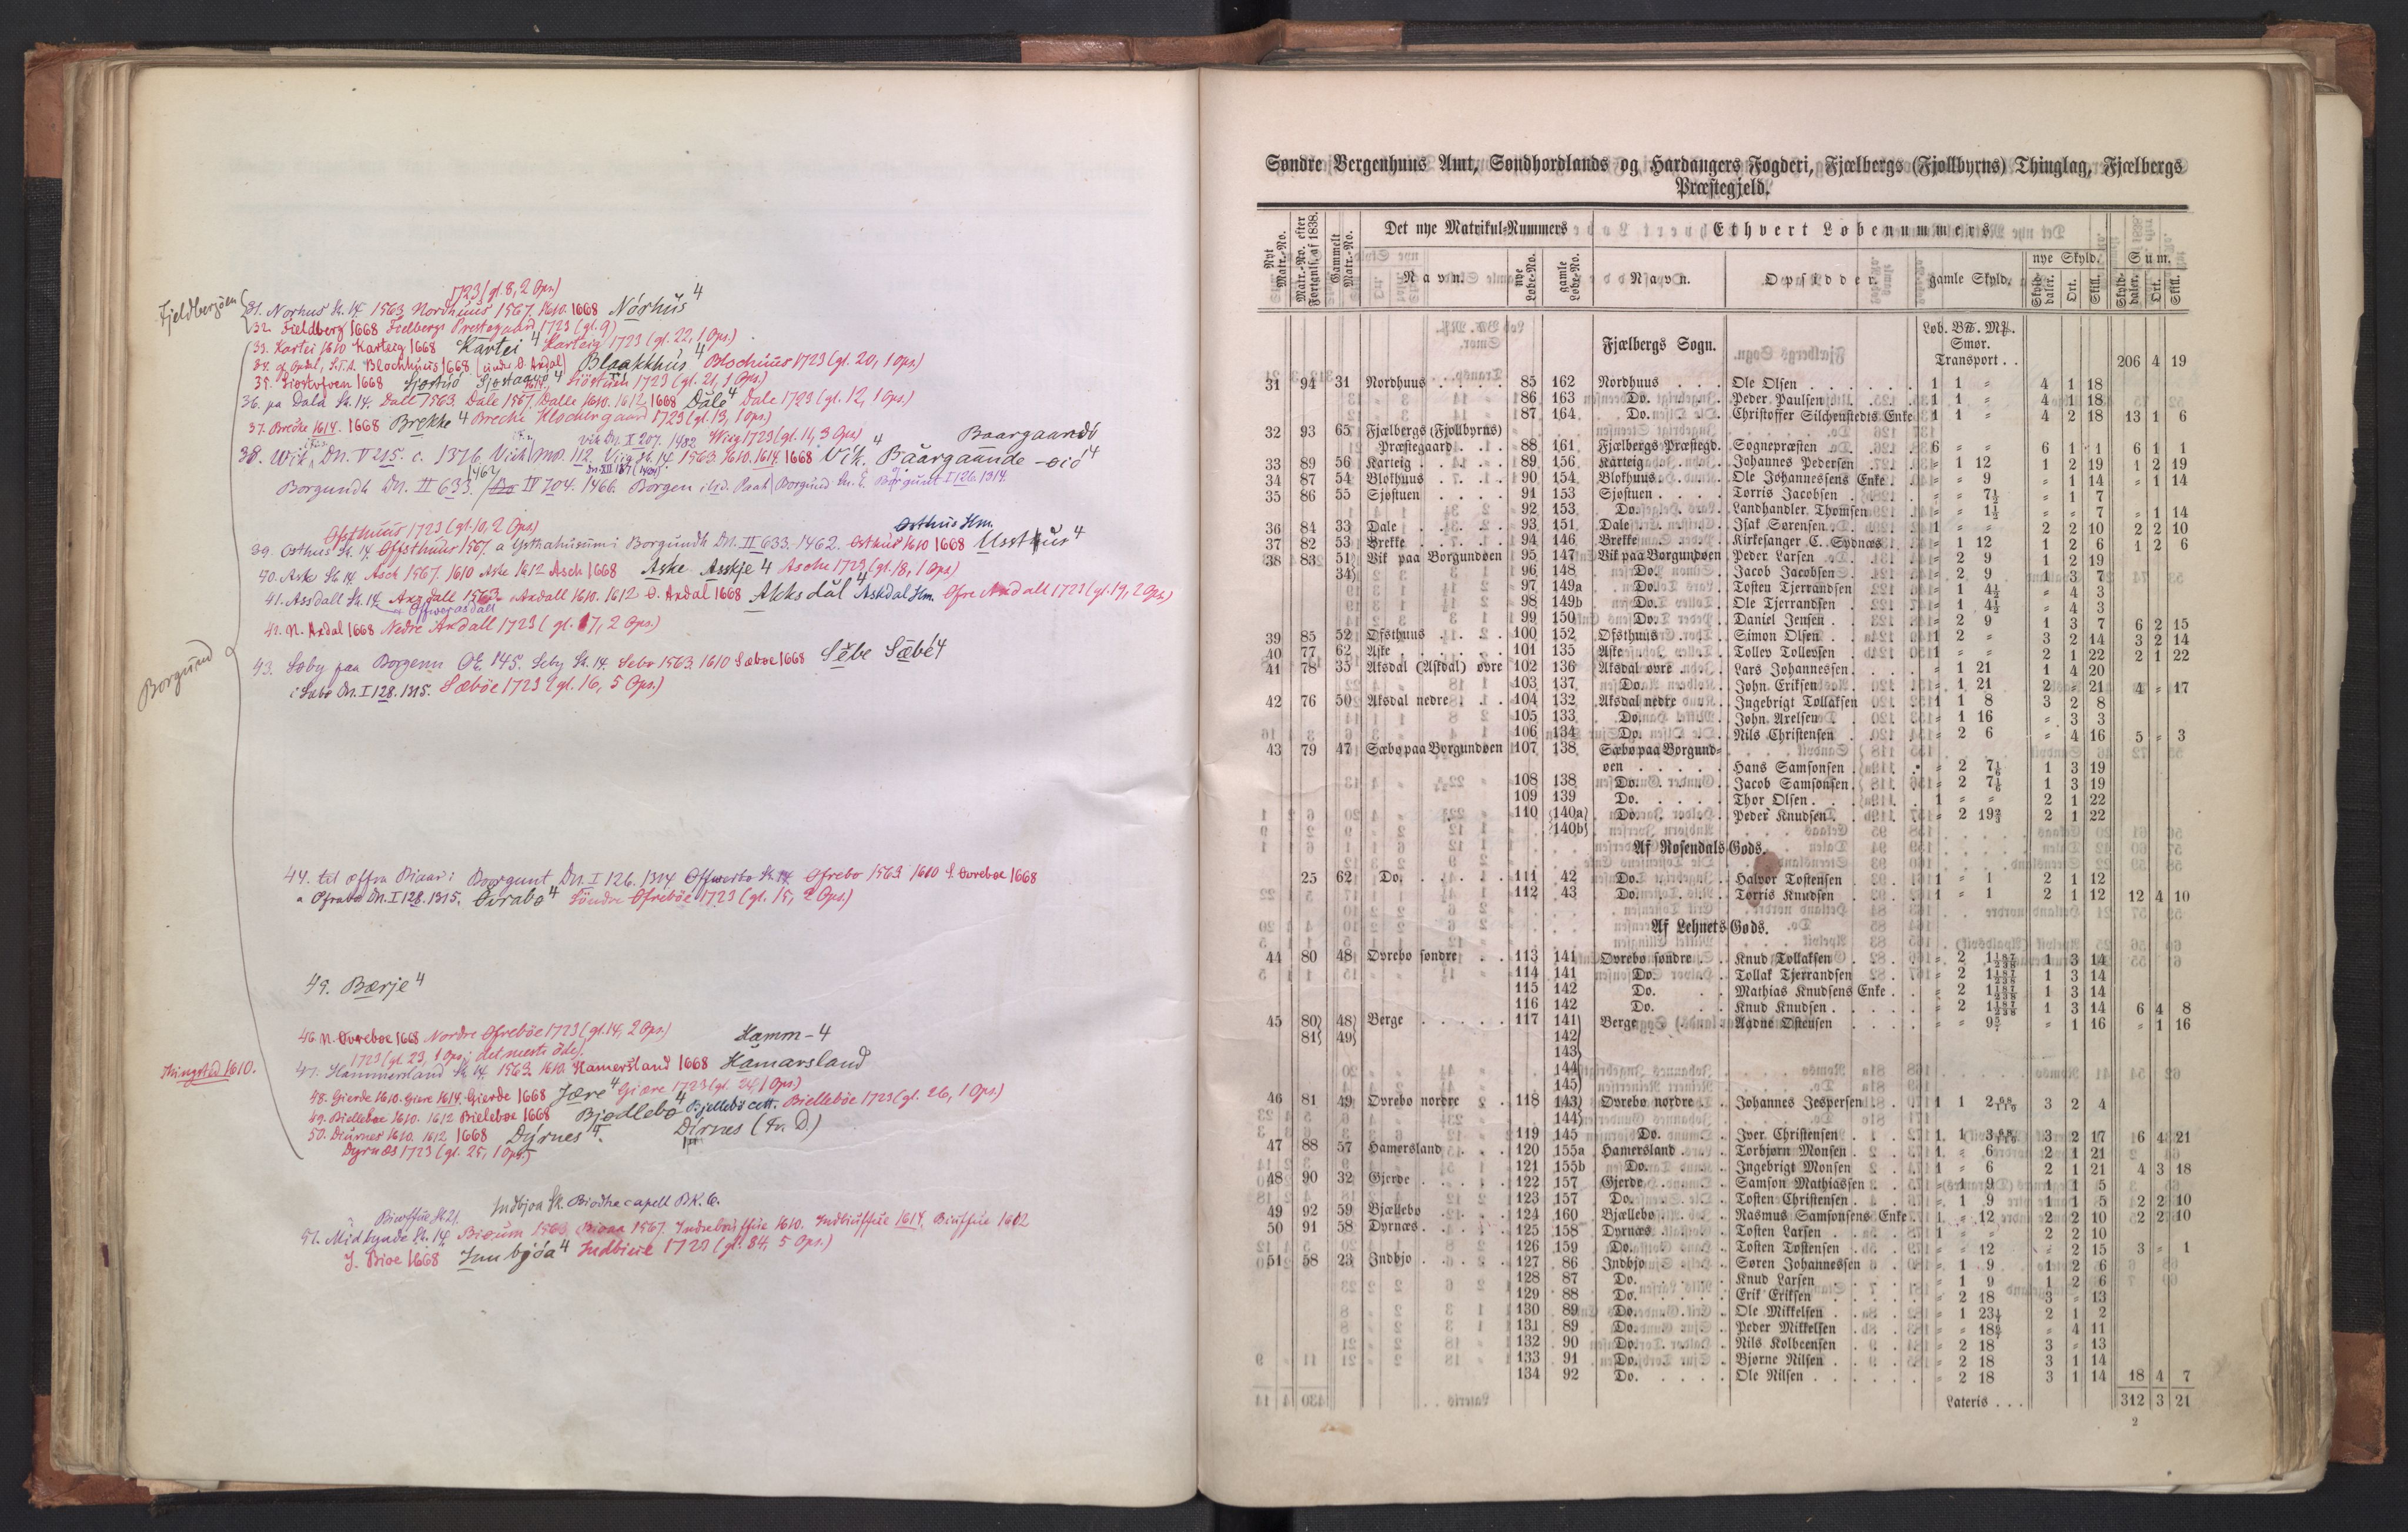 1723 (gl. 8, 2 Ops.)
Fjeldbergøen
31. Norhus St. 14. 1563 Nordhuus 1567. 1610. 1668 Nórhús 4
32. Fieldberg 1668 Fielbergs Prestegaard 1723 (gl. 9)
33. Kartei 1610 Karteig 1668 Kartei 4 Karteig 1723 (gl. 22, 1 Ops.)
34. Blochhuus 1668 (under O. Axdal) Blaakkhús 4 Blochuus 1723 (gl. 20, 1 Ops.)
35. Siostofven 1668 Sjøstuó Sjøstaauó 4 Siöstuen 1723 (gl. 21, 1 Ops.)
36. pa Dala St. 14. Dall 1563. Dale 1567. Dalle 1610. 1612 1668 Dále 4 Dale 1723 (gl. 12, 1 Ops.)
37. Breche 1614. 1668 Brekke 4 Breche Klochergaard 1723 (gl. 13, 1 Ops.)
Vik Dn. I 207. 1492 Wiig 1723 (gl. 11, 3 Ops.) Baargaandó
38. Wik, Dn. V 215. c. 1376 Vich (mo. 112. Viig St. 14. 1563. 1610. 1614. 1668 Vik. Báargaande-oió 4
Borgundh Dn. II 633. 1462 IV 704. 1466. Borgen i Borgund Borgunt I 126. 1314.
Ofsthuus 1723 (gl. 10, 2 Ops.) Osthus Hm.
39. Osthus St. 14. Offsthuus 1567. a Ysthahusum i Borgundh Dn. II 633. 1462. Osthus 1610 1668 Usthús 4
40. Ask St. 14. Asch 1567. 1610 Aske 1612 Asch 1668 Aske Asskje 4 Asche 1723 (gl. 18, 1 Ops.)
41. Assdall St. 14. Axdall 1563. Axdall 1610. 1612 O. Axdal 1668 Akksdal 4 Askdal Hm. Øfre Axdall 1723 (gl. 19, 2 Ops.)
Offwerasdall
42. N. Axdal 1668 Nedre Axdall 1723 (gl. 17, 2 Ops.)
Borgund
43. Soby paa Borgenn OE 145. Seby St. 14. Sebo 1563. 1610 Sæboe 1668 Sĕbe Sæbé 4
i Sæbø Dn. I 128. 1315. Sæböe 1723 (gl. 16, 5 Ops.)
44. til øffra Biaar i Borgunt Dn. I 126. 1314 Offwerbo St. 14. Ofrebo 1563 1610 S. Ovreboe 1668
a Ofrabø Dn. I 128. 1315. Øvrabø 4 Søndre Ofreböe 1723 (gl. 15, 2 Ops.)
49. Bærje 4
46. N. Ovreboe 1668 Nordre Ofreböe 1723 (gl. 14, 2 Ops.) Hamm-4
1723 (gl. 23, 1 Ops.; det meste öde).
Thingsted 1610.
47. Hammersland St. 14. 1563. 1610. Hamersland 1668 Hámarsland
48. Gierde 1610. Giere 1614. Gierde 1668 Jære 4 Giære 1723 (gl. 24, 1 Ops.)
49. Bielleboe 1610. 1612 Bieleboe 1668 Bjødlebo 4 Bjellebö cett. Bielleböe 1723 (gl. 26, 1 Ops.)
50. Diurnes 1610. 1612 1668 Dýrnes 4. Dírnes (Fr. D.)
Dyrnæs 1723 (gl. 25, 1 Ops.)
Indbjoa Sk. Biodhe capell BK. 6.
Biwffue St. 21.
51. Midbynde St. 14. Bioum 1563. Bioaa 1567. Indrebiuffue 1610. Indbiuffue 1614. Biuffue 1612
J. Bioe 1668 Innbjóa 4 Indbioe 1723 (gl. 84, 5 Ops.)
Søndre Bergenhuus Amt, Søndhordlands og Hardangers Fogderi, Fjælbergs (Fjollbyrns) Thinglag, Fjælbergs
Præstegjeld.
Nyt Matr.-No. | Matr.-No. efter Fortegnls. af 1838. | Gammelt Matr.-No. | Det nye Matrikul-Nummers | Ethvert Løbenummers
Navn. | nye Løbe-No. | gamle Løbe-No. | Navn. | Opsidder. | gamle Skyld. | nye Skyld. | Sum.
Skylddaler. | Ort. | Skill. | Skylddaler. | Ort. | Skill.
Løb. Bℳ. Mℳ.
Fjælbergs Sogn. Smør.
Transport . . 206 4 19
31 94 31 Nordhuus 85 162 Nordhuus Ole Olsen 1 1 = 4 1 18
86 163 Do. Peder Paulsen 1 1 = 4 1 18
87 164 Do. Christoffer Silchenstedts Enke 1 1 = 4 2 18 13 1 6
32 93 65 Fjælbergs (Fjollbyrns)
Præstegaard 88 161 Fjælbergs Præstegd. Sognepræsten 6 = = 6 1 1 6 1 1
33 89 56 Karteig 89 156 Karteig Johannes Pedersen = 1 12 1 2 19 1 2 19
34 87 54 Blokhuus 90 154 Blokhuus Ole Johannessens Enke = = 9 = 1 14 = 1 14
35 86 55 Sjøstuen 91 153 Sjøstuen Torris Jacobsen = = 7½ = 1 7
92 153 Do. Landhandler Thomsen = = 1½ = = 7 = 1 14
36 84 33 Dale 93 151 Dale Isak Sørensen 1 = = 2 2 10 2 2 10
37 82 53 Brekke 94 146 Brekke Kirkesanger C. Sydnæs = 1 12 1 2 6 1 2 6
38 83 51 Vik paa Borgundøen 95 147 Vik paa Borgundøen Peder Larsen = 2 9 1 2 19
34 96 148 Do. Jacob Jacobsen = 2 9 1 3 7
97 149a Do. Tosten Tjerrandsen = 1 4½ = 4 3
98 149b Do. Ole Tjerrandsen = 1 4½ = 4 3
99 150 Do. Daniel Jensen = 2 9 1 3 7 6 2 15
39 85 52 Ofsthuus 100 152 Ofsthuus Simon Olsen 1 2 = 3 2 14 3 2 14
40 77 62 Aske 101 135 Aske Tollev Tollevsen 1 = = 2 1 22 2 1 22
41 78 35 Aksdal (Askdal) øvre 102 136 Aksdal øvre Lars Johannessen = 1 21 1 4 20
103 137 Do. John Eriksen = 1 21 2 = 21 4 = 17
42 76 50 Aksdal nedre 104 132 Aksdal nedre Ingebrigt Tollaksen 1 1 8 3 2 8
105 133 Do. John Axelsen = 1 16 = 3 3
106 134 Do. Nils Christensen = 2 6 = 4 16 5 = 3
43 79 47 Sæbø paa Borgundøen 107 138 Sæbø paa Borgund-
øen Hans Samsonsen = 2 7⅙ 1 3 19
108 138 Do. Jacob Samsonsen = 2 7⅙ 1 3 19
109 139 Do. Thor Olsen 1 = = 2 1 22
110 140a Do. Peder Knudsen = 2 19⅔ 2 1 22
140b
Af Rosendals Gods.
25 62 Do. 111 42 Do. Halvor Tostensen 1 = 1 2 1 12
112 43 Do. Torris Knudsen 1 = 1 2 1 12 12 4 10
Af Lehnets Gods.
44 80 48 Ovrebø søndre 113 141 Ovrebø søndre Knud Tollaksen = 2 1 187/238 1 3 14
114 141 Do. Tollak Tjerrandsen = 2 1 187/238 1 3 14
115 142 Do. Mathias Knudsens Enke = 2 1 187/238 1 3 14
116 142 Do. Knud Knudsen = 2 1 187/238 1 3 14 6 4 8
45 80 48 Berge 117 141 Berge Aadne Ostensen = = 9 5/7 = 1 16 = 1 16
81 49 142
143
144
145
46 81 49 Ovrebø nordre 118 143 Ovrebø nordre Johannes Jespersen 1 1 2 68/119 3 2 4
144
119 145 Do. Iver Christensen 1 1 3 68/119 3 2 17 6 4 21
47 88 57 Hamersland 120 155a Hamersland Torbjørn Monsen 1 = 6 2 1 21
121 155b Do. Ingebrigt Monsen 1 = 6 2 1 21 4 3 18
48 90 32 Gjerde 122 157 Gjerde Samson Mathiassen = 1 9 1 1 5
123 157 Do. Tosten Christensen = 1 9 1 1 5 2 2 10
49 92 59 Bjællebø 124 160 Bjællebø Rasmus Samsonsens Enke 1 = 12 2 2 10 2 2 10
50 91 58 Dyrnæs 125 158 Dyrnæs Tosten Larsen 1 = = 2 2 10
126 159 Do. Tosten Tostensen = = 12 = 2 15 3 = 1
51 58 23 Indbjo 127 86 Indbjo Søren Johannessen = 1 9 1 2 6
128 87 Do. Knud Larsen = 1 9 1 2 6
129 88 Do. Erik Eriksen = 2 18 3 = 13
130 89 Do. Ole Mikkelsen = 1 23 2 1 2
131 89 Do. Peder Mikkelsen = = 18 = 4 11
132 90 Do. Nils Kolbeensen = 2 18 3 = 13
133 91 Do. Bjørne Nilsen = 2 18 3 1 14
134 92 Do. Ole Nilsen = 2 18 3 1 14 18 4 7
Lateris . . . 312 3 21
2